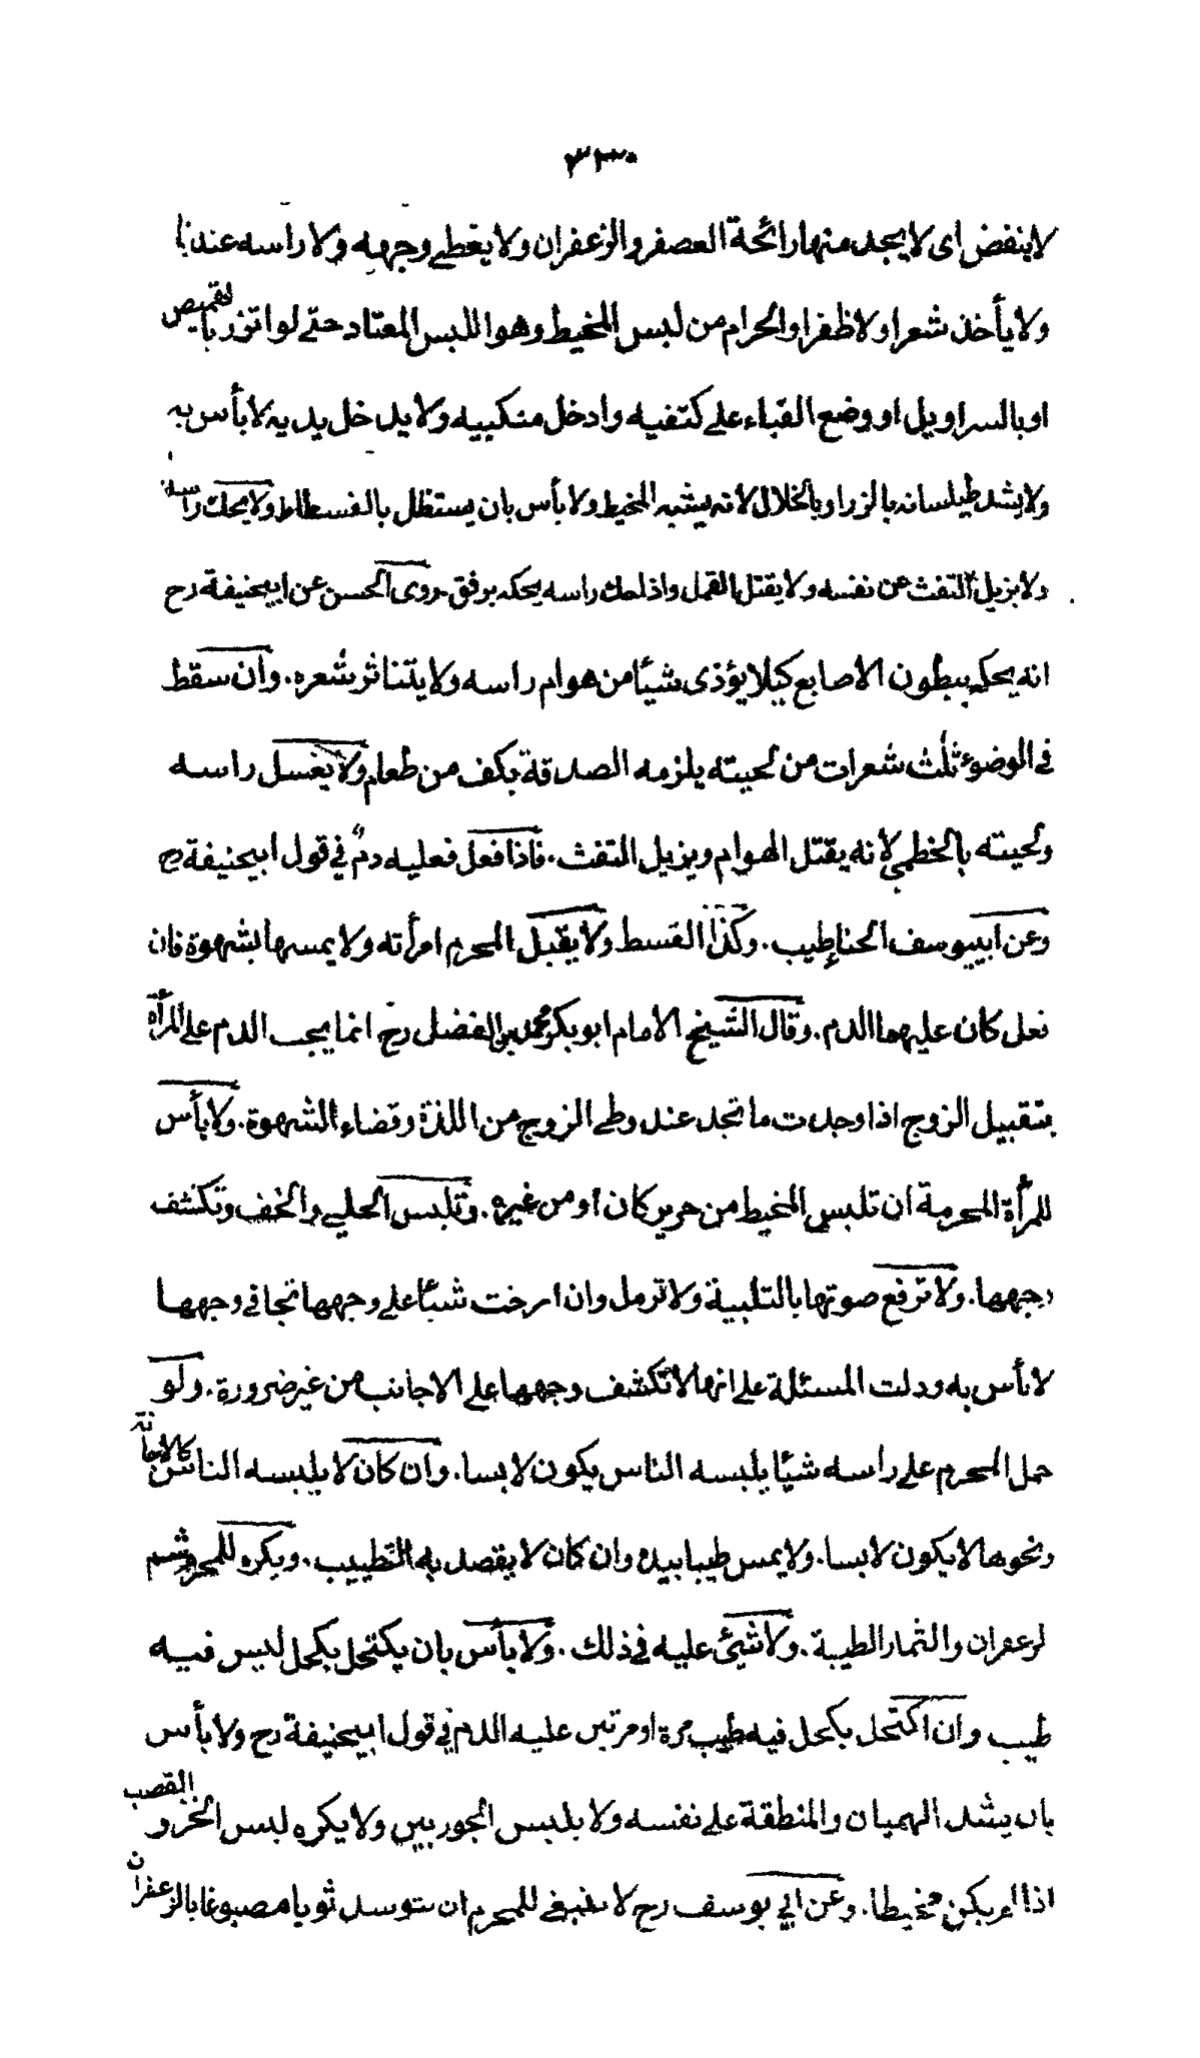 ٣٣٠
لا ينفض اى لا يجد منها رائحة العصفر والزعفران ولا يغطى وجهه ولا راسه عندنا
ولا يأخذ شعرا ولا ظفرا والحرام من لبس المخيط وهو اللبس المعتاد حتى لو اتزر بالقميص
او بالسراويل او وضع القباء على كتفيه وادخل منكبيه ولا يدخل يديه لا بأس به
ولا يشد طيلسانه بالزر او بالخلال لانه يشبه المخيط ولا بأس بان يستظل بالفسطاط ولا يحك راسه
ولا يزيل التفث عن نفسه ولا يقتل القمل واذا حك راسه يحكه برفق. روى الحسن عن ابيحنيفة رح
انه يحكه ببطون الاصابع كيلا يؤذى شيئا من هوام راسه ولا يتناثر شعره. وان سقط
فى الوضوء ثلث شعرات من لحيته يلزمه الصدقة بكف من طعام ولا يغسل راسه
ولحيته بالخطمي لانه يقتل الهوام ويزيل التفث. فاذا فعل فعليه دم فى قول ابيحنيفة رح
وعن ابييوسف الحنا طيب. وكذا القسط ولا يقبل المحرم امرأته ولا يمسها بشهوة فان
فعل كان عليهما الدم. وقال الشيخ الامام ابو بكر محمد بن الفضل رح انما يجب الدم على المرأة
بتقبيل الزوج اذا وجدت ما تجد عند وطى الزوج من اللذة وقضاء الشهوة. ولا بأس
للمرأة المحرمة ان تلبس المخيط من حرير كان او من غيره. وتلبس الحلي والخف وتكشف
وجهها. ولا ترفع صوتها بالتلبية ولا ترمل وان ارخت شيئا على وجهها تجافى وجهها
لا بأس به ودلت المسئلة على انها لا تكشف وجهها على الاجانب من غير ضرورة. ولو
حمل المحرم على راسه شيئا يلبسه الناس يكون لابسا. وان كان لا يلبسه الناس كالاجانة
ونحوها لا يكون لابسا. ولا يمس طيبا بيده وان كان لا يقصد به التطييب. ويكره للمحرم شم
لزعفران والثمار الطيبة. ولا شيئ عليه فى ذلك. ولا بأس بان يكتحل بكحل ليس فيه
طيب وان اكتحل بكحل فيه طيب مرة او مرتين عليه الدم فى قول ابيحنيفة رح ولا بأس
بان يشد الهميان والمنطقة على نفسه ولا يلبس الجوربين ولا يكره لبس الخز والقصب
اذا لم يكن مخيطا. وعن ابي يوسف رح لا ينبغى للمحرم ان يتوسد ثوبا مصبوغا بالزعفران